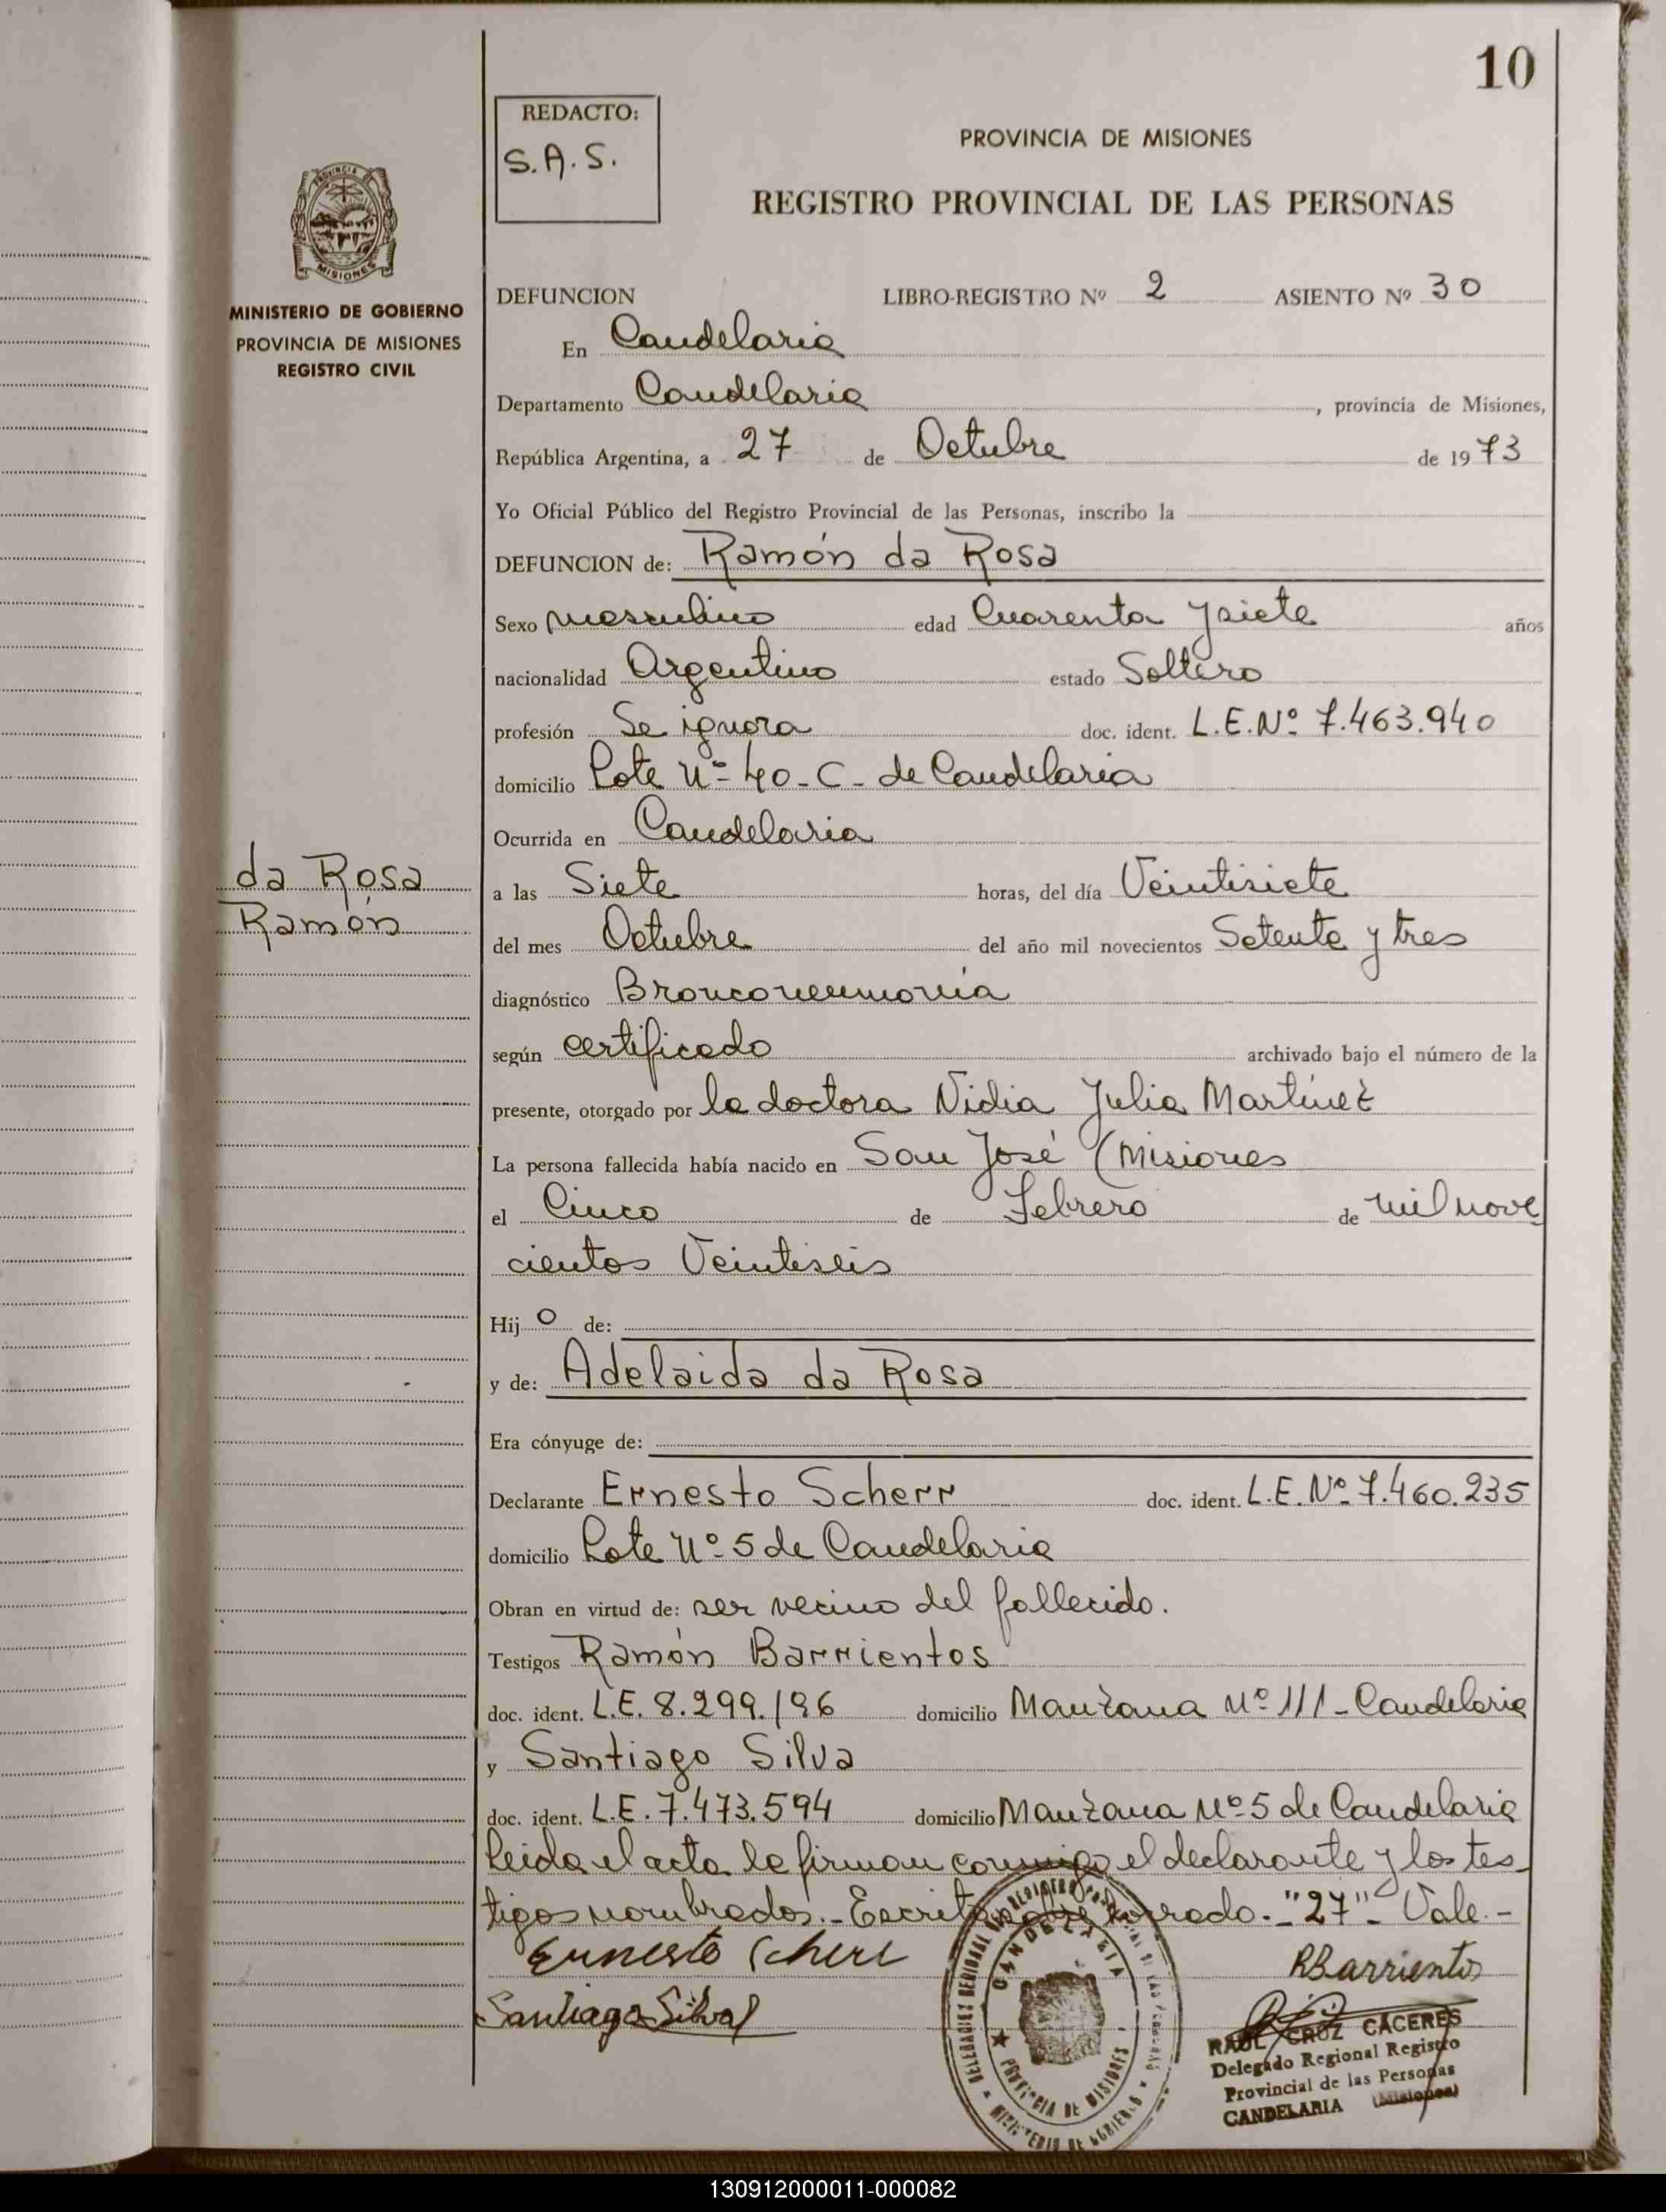 10
REDACTO:
S.A.S.
PROVINCIA DE MISIONES
REGISTRO PROVINCIAL DE LAS PERSONAS
PROVINCIA DE
MISIONES
MINISTERIO DE GOBIERNO
PROVINCIA DE MISIONES
REGISTRO CIVIL
DEFUNCION LIBRO-REGISTRO Nº 2 ASIENTO Nº 30
En Candelaria
Departamento Candelaria, provincia de Misiones,
República Argentina, a 27 de Octubre de 1973
Yo Oficial Público del Registro Provincial de las Personas, inscribo la
DEFUNCION de: Ramón da Rosa
Sexo masculino edad Cuarenta y siete años
nacionalidad Argentino estado Soltero
profesión Se ignora doc. ident. L.E.Nº 7.463.940
domicilio Lote Nº 40-C- de Candelaria
Ocurrida en Candelaria
da Rosa
Ramón
a las Siete horas, del día Veintisiete
del mes Octubre del año mil novecientos Setenta y tres
diagnóstico Bronconeumonía
según certificado archivado bajo el número de la
presente, otorgado por la doctora Nidia Julia Martínez
La persona fallecida había nacido en San José (Misiones
el Cinco de Febrero de mil nove
cientos Veintiseis
Hijo de:
y de: Adelaida da Rosa
Era cónyuge de:
Declarante Ernesto Scherr doc. ident. L.E.Nº 7.460.235
domicilio Lote Nº 5 de Candelaria
Obran en virtud de: ser vecino del fallecido.
Testigos Ramón Barrientos
doc. ident. L.E. 8.299.196 domicilio Manzana Nº 111-Candelaria
y Santiago Silva
doc. ident. L.E. 7.473.594 domicilio Manzana Nº 5 de Candelaria
Leida el acta la firman conmigo el declarante y los tes
tigos nombrados.- Escrito sobre borrado.-"27"- Vale.-
Ernesto Scherr
RBarrientos
Santiago Silva
DELEGACION REGIONAL DEL REGISTRO PROVINCIAL DE LAS PERSONAS
CANDELARIA
PROVINCIA DE MISIONES
MINISTERIO DE GOBIERNO
RAUL CRUZ CACERES
Delegado Regional Registro
Provincial de las Personas
CANDELARIA (Misiones)
130912000011-000082